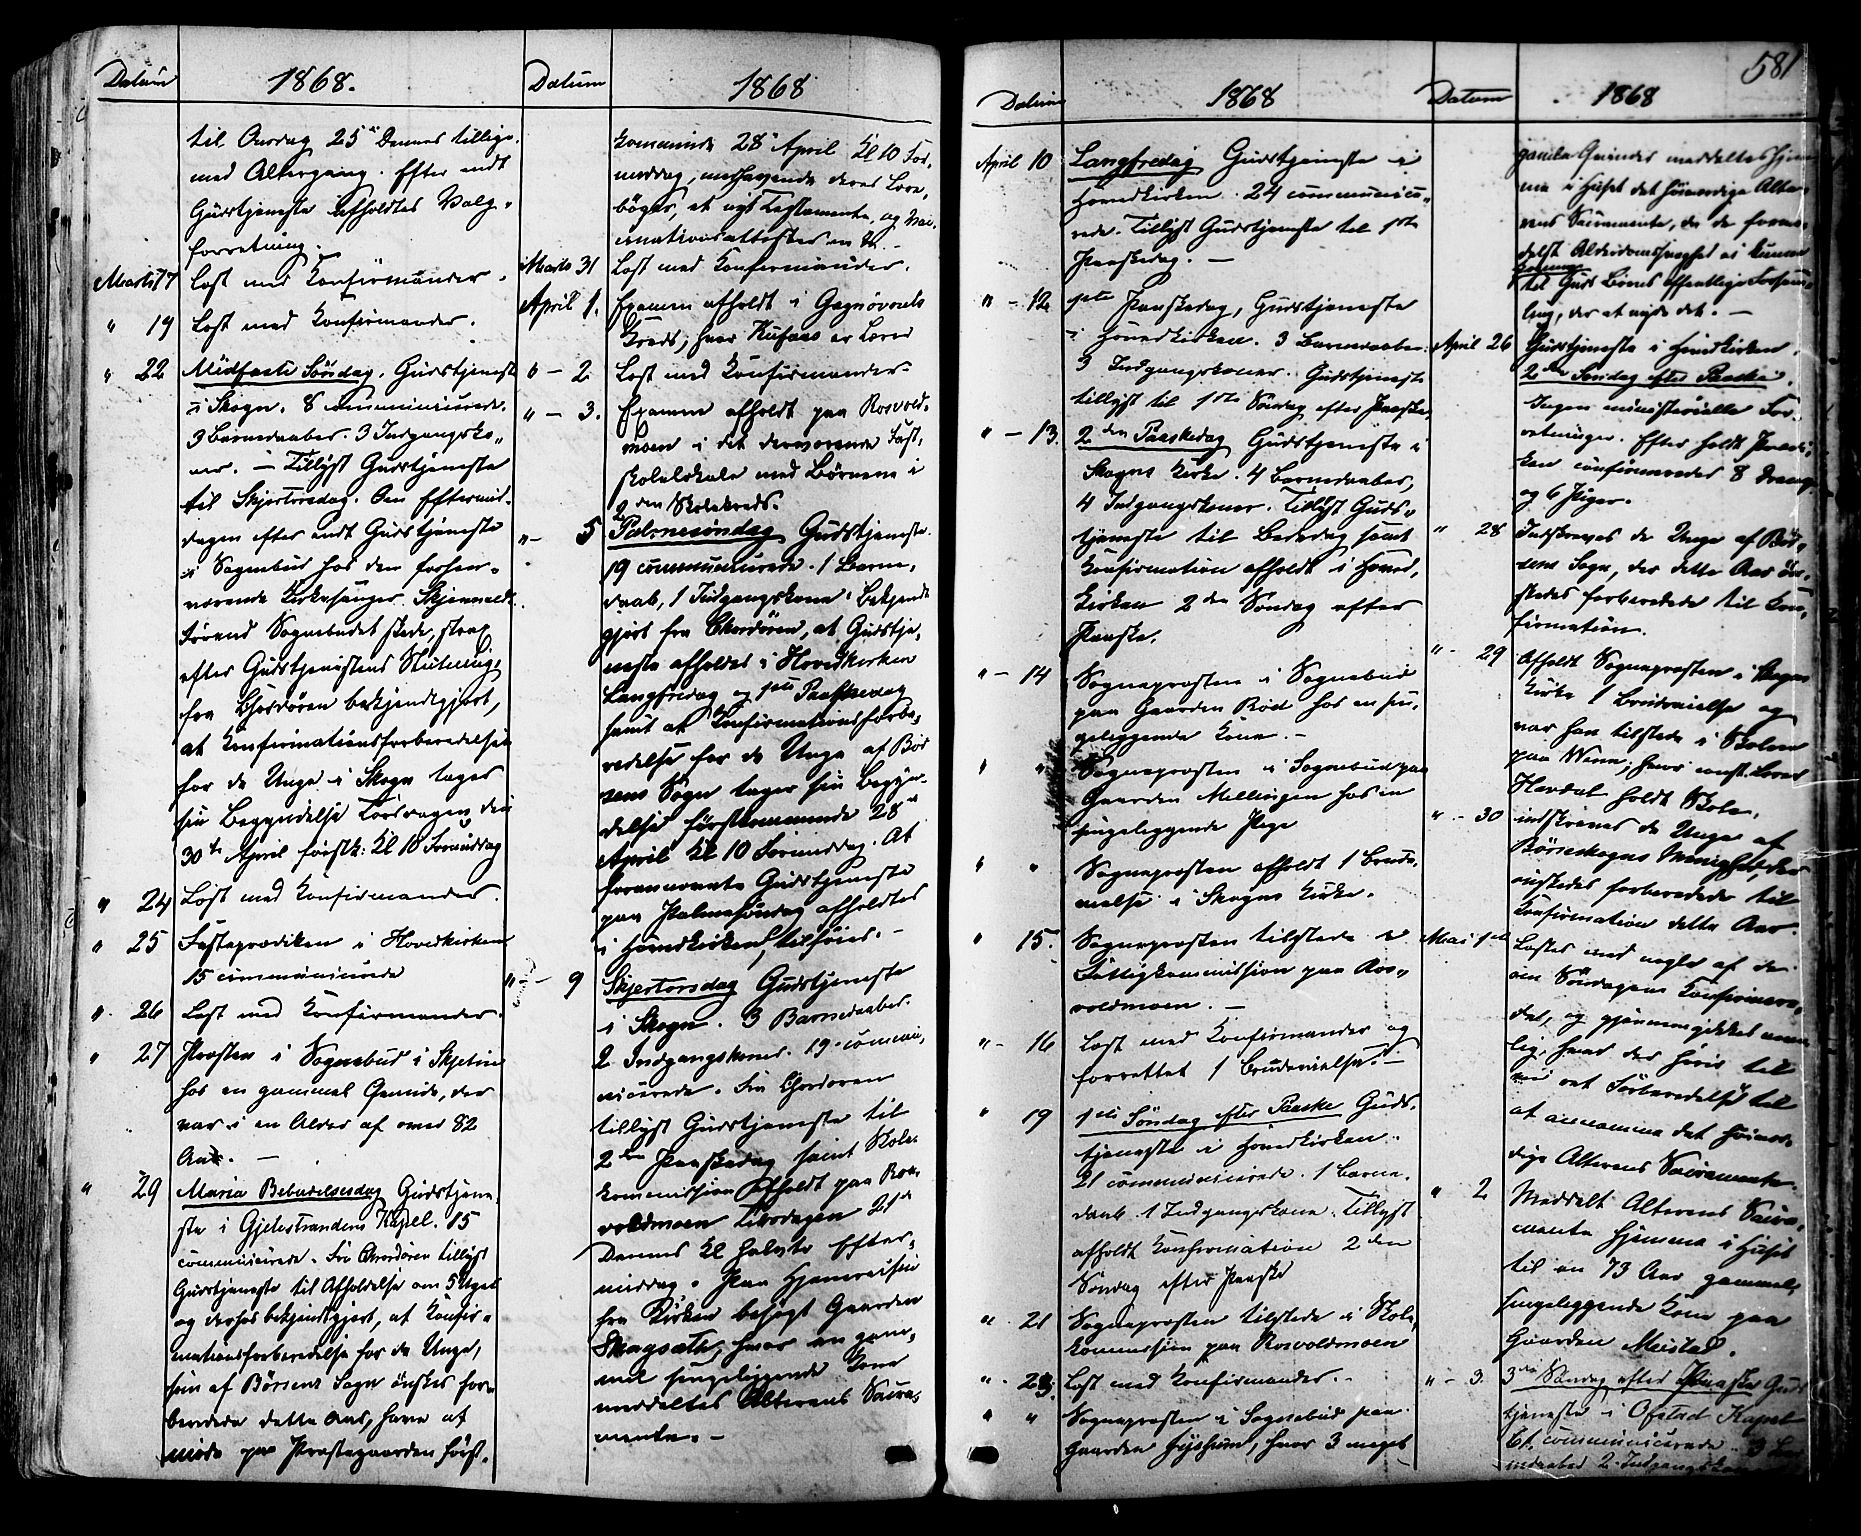 581
Datum 1868.
til Onsdag 25de Dennes tillige
med Altergang. Efter endt
Gudstjeneste afholdtes Valg-
forretning.
Marts 17 Læst med Konfirmander.
" 19 Læst med Konfirmander.
" 22 Midfaste Søndag. Gudstjeneste
i Skogn. 8 communicerede.
3 Barnedaaber. 3 Indgangsko-
ner. – Tillyst Gudstjeneste
til Skjertorsdag. Om Eftermid-
dagen efter endt Gudstjeneste
i Sognebud hos den forhen-
værende Kirkesanger
førend Sognebudet skede, strax
efter Gudstjenestens Slutning,
fra Chordøren bekjendtgjort,
at Konfirmationsforberedelsen
for de Unge i Skogn tager
sin Begyndelse Torsdagen den
30te April førstk: Kl 10 Formiddag
" 24 Læst med Konfirmander.
" 25 Fasteprædiken i Hovedkirken
15 communicerede
" 26 Læst med Konfirmander.
" 27 Præsten i Sognebud i Skjetin
hos en gammel Qvinde, der
var i en Alder af over 82
Aar. –
" 29 Maria Bebudelsesdag Gudstjene-
ste i Gjetestrandens Kapel. 15
communicerede. Fra Chordøren tillyst
Gudstjeneste til Afholdelse om 5 Uger
og derhos bekjendtgjort, at Konfir-
mationsforberedelse for de Unge,
som af Børsens Sogn ønskes for-
beredede dette Aar, have at
møde paa Præstegaarden først.
Datum 1868
kommende 28de April Kl 10 For-
middag, medhavende deres Lære-
bøger, et nyt Testamente, og Vac-
cinationsattester m. v. –
Marts 31 Læst med Konfirmander.
April 1. Examen afholdt i
Kreds, hvor er Lærer
" – 2 Læst med Konfirmander.
" – 3. Examen afholdt paa Rosvold-
moen i det derværende Fast-
skolelokale med Børnene i
2den Skolekreds.
" – 5 Palmesøndag Gudstjeneste.
19 communicerede. 1 Barne-
daab, 1 Indgangskone. Bekjendt-
gjort fra Chordøren, at Gudstje-
neste afholdes i Hovedkirken
Langfredag og 1ste Paaskedag
samt at Konfirmationsforbe-
redelse for de Unge af Bør-
sens Sogn tager sin Begyn-
delse førstkommende 28de
April Kl 10 Formiddag. At
forannævnte Gudstjeneste
paa Palmesøndag afholdtes
i Hovedkirken, tilføies. –
" – 9 Skjertorsdag Gudstjeneste
i Skogn. 3 Barnedaaber.
2 Indgangskoner. 19 commu-
nicerede. Fra Chordøren
tillyst Gudstjeneste til
2den Paaskedag samt Skole-
kommission afholdt paa Ros-
voldmoen Tirsdagen 21de
Dennes Kl halvto Efter-
middag. Paa Hjemreisen
fra Kirken besøgt Gaarden
hvor en gam-
mel sengeliggende Kone
meddeltes Alterens Sacra-
mente. –
Datum 1868
April 10 Langfredag Gudstjeneste i
Hovedkirken. 24 communice-
rede. Tillyst Gudstjeneste til 1ste
Paaskedag. –
" – 12 1ste Paaskedag, Gudstjeneste
i Hovedkirken. 3 Barnedaaber.
3 Indgangskoner. Gudstjeneste
tillyst til 1ste Søndag efter Paaske.
" – 13. 2den Paaskedag Gudstjeneste i
Skogns Kirke. 4 Barnedaaber,
4 Indgangskoner. Tillyst Guds-
tjeneste til Bededag samt
Konfirmation afholdt i Hoved-
kirken 2den Søndag efter
Paaske.
" – 14 Sognepresten i Sognebud
paa Gaarden Rød hos en sen-
geliggende Kone. –
" " Sognepresten i Sognebud paa
Gaarden Mellingen hos en
sengeliggende Pige
" " Sognepresten afholdt 1 Brude-
vielse i Skogns Kirke.
" 15. Sognepresten tilstede i
Fattigkommission paa Ros-
voldmoen. –
" – 16 Læst med Konfirmander og
forrettet 1 Brudevielse. –
" 19 1ste Søndag efter Paaske Guds-
tjeneste i Hovedkirken.
21 communicerede. 1 Barne-
daab. 1 Indgangskone. Tillyst
afholdt Konfirmation 2den
Søndag efter Paaske
" . 21 Sognepresten tilstede i Skole-
kommission paa Rosvoldmoen
" . 23. Læst med Konfirmander. –
" " Sognepresten i Sognebud paa
Gaarden hvor 3 meget
Datum 1868
gamle Qvinder meddeltes hjem-
me i Huset det høiværdige Alte-
rens Sacramente, da de forme-
delst Alderdomssvaghed ei kunne
komme
til Guds Børns offentlige Forsam-
ling, der at nyde det. –
April 26 Gudstjeneste i Hovedkirken.
2den Søndag efter Paaske.
Ingen ministerielle For-
retninger. Efter holdt Prædi-
ken confirmeredes 8 Drenge
og 6 Piger.
" 28 Indskreves de Unge af Bør-
sens Sogn, der dette Aar øn-
skedes forberedede til Kon-
firmation.
" . 29 Afholdt Sognepresten i Skogns
Kirke 1 Brudevielse og
var han tilstede i Skolen
paa Winn, hvor const. Lærer
Havdal holdt Skole.
" – 30 indskreves de Unge af
Børseskogns Menighed, der
ønskedes forberedede til
Konfirmation dette Aar.
Mai 1ste Læstes med nogle af de
om Søndagen Konfirmere-
de, og gjennemgikkes
hvad der hører til
en ret Forberedelse til
at annamme det høivær-
dige Alterens Sacramente.
" 2 Meddelt Alterens Sacra-
mente hjemme i Huset
til en 73 Aar gammel,
sengeliggende Kone paa
Gaarden Meistad.
" – 3. 3die Søndag efter Paaske Guds-
tjeneste i Ofstad Kapel
communicerede. 3 Bar-
nedaaber 2 Indgangskoner